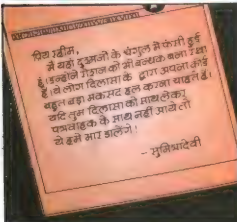 प्रिय रहीम,
मैं यहां दुश्मनों के चंगुल में फंसी हुई
हूं। इन्होंने मैडान को भी बन्धक बना रखा
है। ये लोग दिलासा के द्वारा अपना कोई
बहुत बड़ा मकसद हल करना चाहते हैं।
यदि तुम दिलासा को साथ लेकर
पत्रवाहक के साथ नहीं आये तो
ये हमें मार डालेंगे!
- सुमित्रादेवी